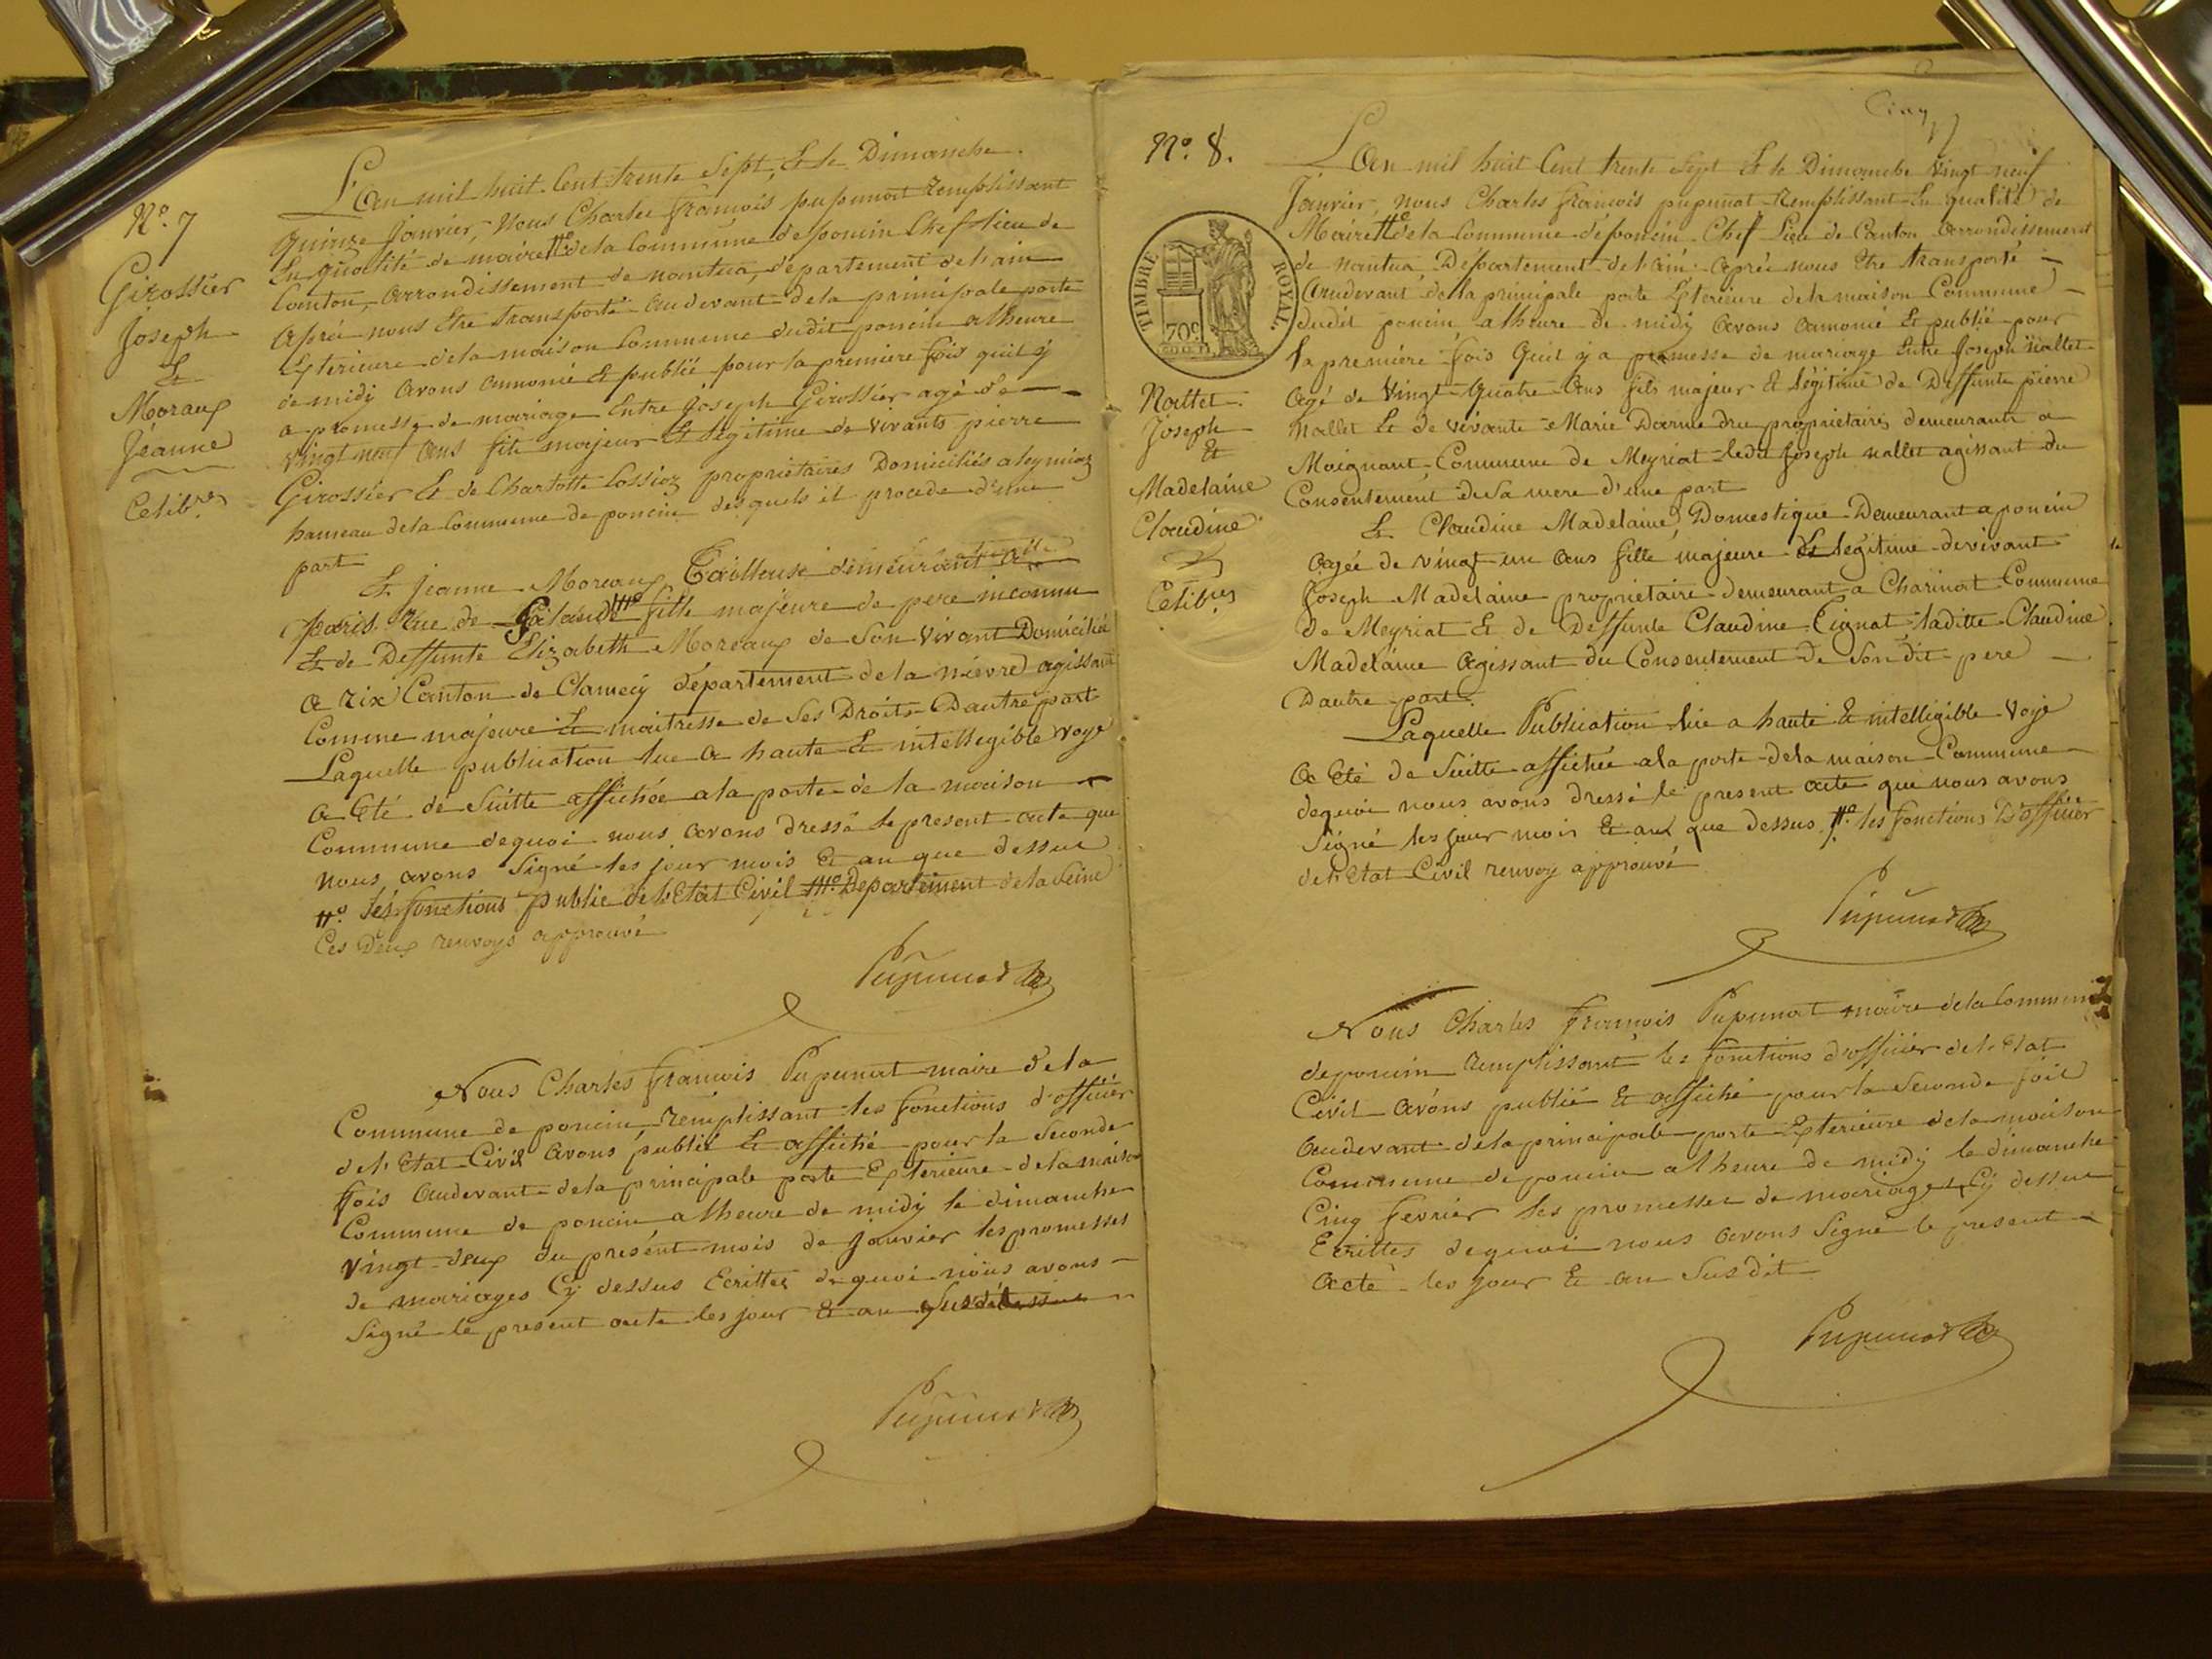 N.o 7
Girossier
Joseph
Et
Moraux
Jeanne
Celib.res
L'an mil huit Cent trente Sept, Et le Dimanche
quinze Janvier, Nous Charles françois pupunat Remplissant
En qualité de maire #o de la Commune de poncin Chef Lieu de
Canton, arrondissement de nantua, département de l'ain
après nous Etre transporté audevant de la principale porte
Exterieure de la maison Commune dudit poncin a lheure
de midy avons annoncé Et publié pour la premiere fois quil y
a promesse de mariage Entre Joseph Girossier agé de
vingt neuf ans fils majeur Et legitime de vivants pierre
Girossier Et de Charlotte Cossioz propriétaires Domiciliés a leymiaz
hameau de la Commune de poncin desquels il procede d'une
part
Et Jeanne Moreaux Tailleuse demeurant a
paris Rue de fille majeure de pere inconnu
Et de Deffunte Elizabeth Moreaux de Son vivant Domicilié
a Rix Canton de Clamecy département de la nievre agissant
Comme majeure Et maitresse de Ses Droits Dautre part
Laquelle publication lue a haute Et intellegible voye
a Eté de Suitte affichée a la porte de la maison
Commune dequoi nous avons dressé le present acte que
nous avons Signé les jour mois Et an que dessus
#o les fonctions public de l'Etat Civil ###o Departement de la Seine
Ces Deux renvoys approuvé
Pupunat
Nous Charles françois Pupunat maire de la
Commune de poncin Remplissant les fonctions d'officier
de l'Etat Civil avons publié Et affiché pour la Seconde
fois audevant de la principale porte Exterieure de la maison
Commune de poncin a lheure de midy le dimanche
vingt deux du présent mois de janvier les promesses
de mariages Cy dessus Ecrittes de quoi nous avons
Signé le present acte les jour Et an Susdit
Pupunat
Cinq
N.o 8.
TIMBRE ROYAL.
70c
Nallet
Joseph
Et
Madelaine
Claudine
Celib.res
L'an mil huit Cent trente Sept Et le Dimanche vingt neuf
Janvier, nous Charles françois pupunat Remplissant En qualité de
Maire #o de la Commune de poncin Chef Lieu de Canton arrondissement
de nantua, Département de l'ain après nous Etre transporté
audevant de la principale porte Exterieure de la maison Commune
dudit poncin a lheure de midy avons annoncé Et publié pour
la première fois Quil y a promesse de mariage Entre Joseph Nallet
agé de vingt quatre ans fils majeur Et légitime de Deffunte pierre
nallet Et de vivante Marie propriétaires demeurants a
Moignant Commune de Meyriat ledit Joseph nallet agissant du
Consentement de Sa mere d'une part
Et Claudine Madelaine Domestique Demeurant a poncin
agée de vingt un ans fille majeure Et legitime de vivant
Joseph Madelaine propriétaire demeurant a Charinat Commune
de Meyriat Et de Deffunte Claudine Tignat, laditte Claudine
Madelaine agissant du Consentement de Son dit pere
Dautre part.
Laquelle Publication lue a haute Et intelligible Voye
a Eté de Suitte affichée a la porte de la maison Commune
dequoi nous avons dressé le present acte que nous avons
Signé les jour mois Et an que dessus #o les fonctions D'officier
de l'Etat Civil renvoy approuvé
Pupunat
Nous Charles françois Pupunat maire de la Commune
de poncin Remplissant les fonctions d'officier de l'Etat
Civil avons publié Et affiché pour la Seconde fois
audevant de la principale porte Exterieure de la maison
Commune de poncin a lheure de midy le dimanche
Cinq fevrier les promesses de mariages Cy dessus
Ecrittes dequoi nous avons Signé le present
acte les jour Et an Susdit
Pupunat